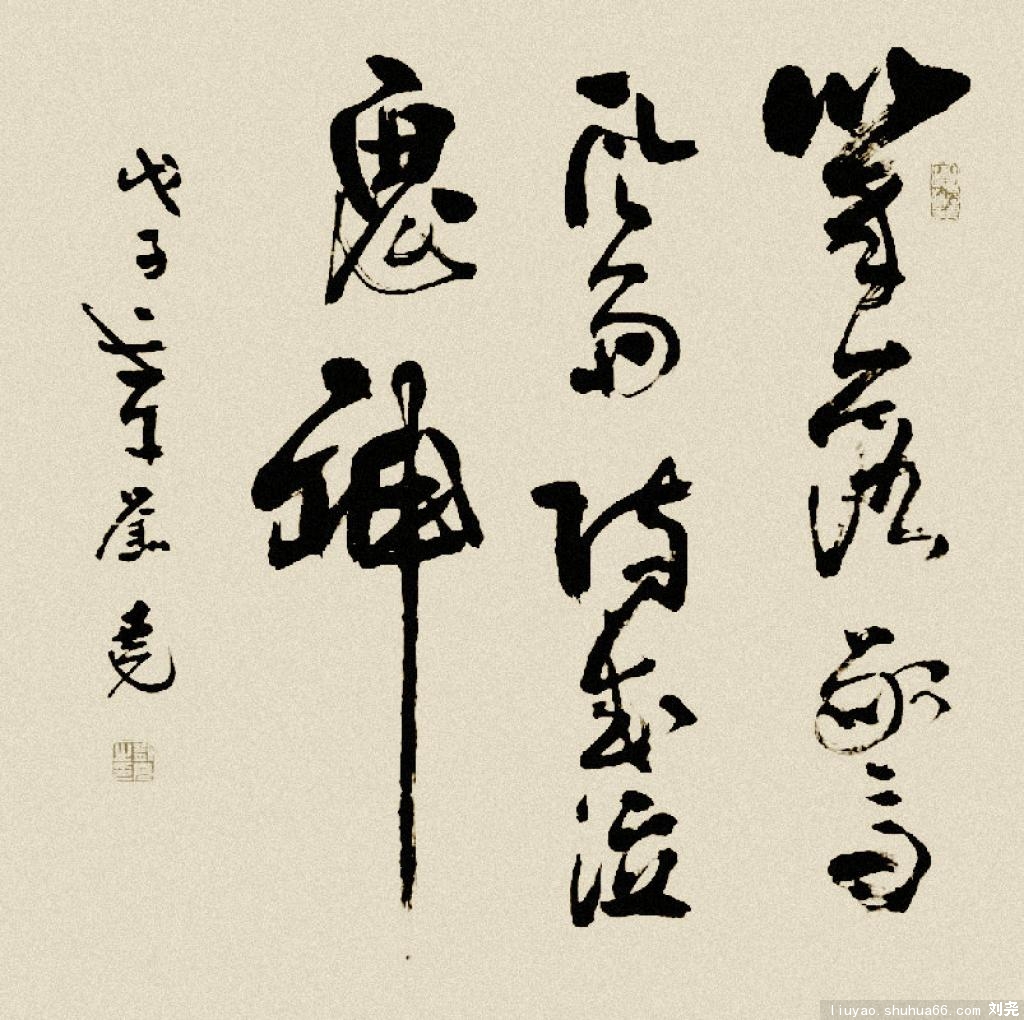 笔落惊
风雨诗成泣
鬼神
戊子 刘尧
liuyao.shuhua66.com 刘尧